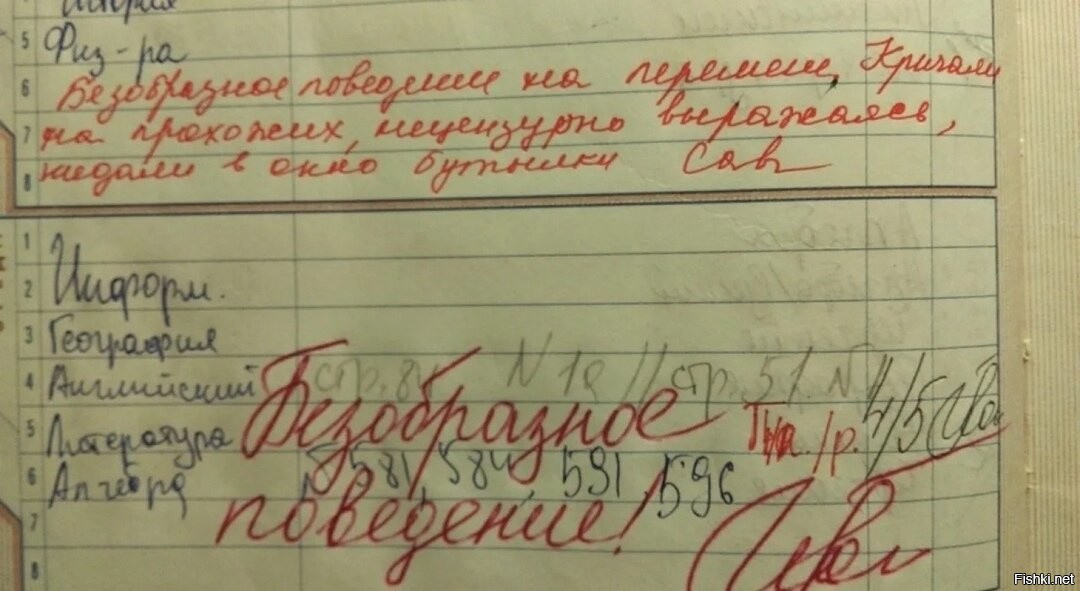 История
5 Физ-ра
6 Безобразное поведение на перемен. Кричали
7 на прохожих, нецензурно выражаясь,
8 кидали в окно бутылки
1
2 Информ.
3 География
4 Английский стр. 84 N 1a // стр. 51 N 4/5
5 Литература Безобразное /р.
6 Алгебра № 581, 584, 591, 596
7 поведение!
8
Fishki.net